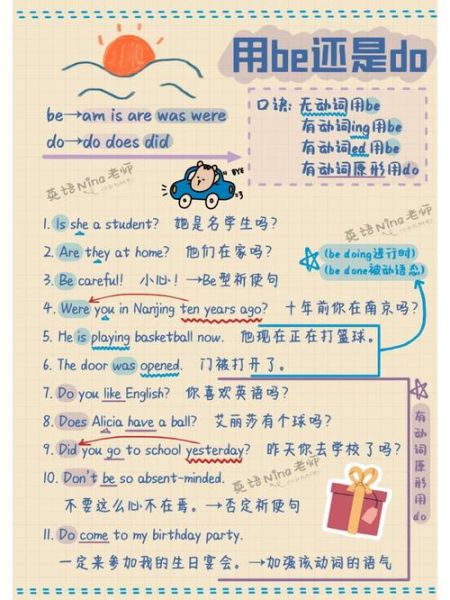 用be还是do
be→am is are was were
do→do does did
口诀: 无动词用be
有动词ing用be
有动词ed用be
有动词原形用do
英语Nina老师
BYE
英语Nina老师
1. Is she a student? 她是名学生吗?
2. Are they at home? 他们在家吗?
(be doing进行时)
(be done被动语态)
3. Be careful! 小心! →Be型祈使句
4. Were you in Nanjing ten years ago? 十年前你在南京吗?
5. He is playing basketball now. 他现在正在打篮球。
6. The door was opened. 门被打开了。
7. Do you like English? 你喜欢英语吗?
8. Does Alicia have a ball? 艾丽莎有个球吗?
9. Did you go to school yesterday? 昨天你去学校了吗?
有动词原形用do
10. Don't be so absent-minded.
英语Nina老师
不要这么心不在焉。→否定祈使句
11. Do come to my birthday party.
一定来参加我的生日宴会。→加强该动词的语气